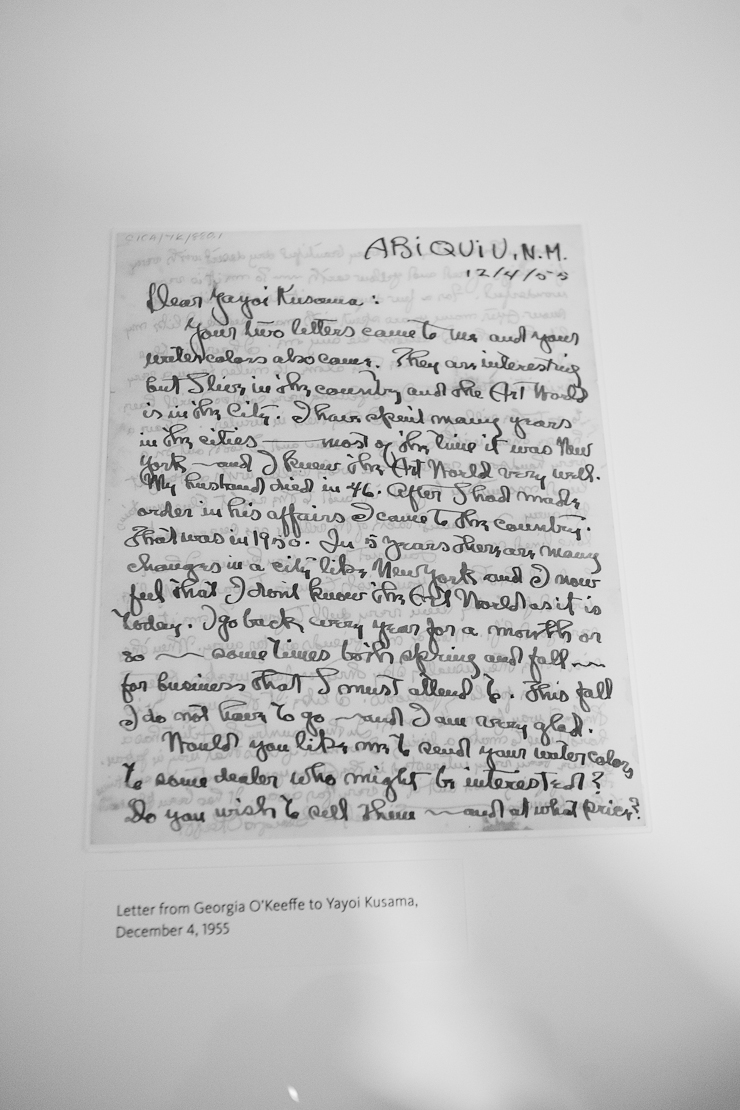 ABiQUiU, N.M.
12/4/55
Dear Yayoi Kusama :
Your two letters came to me and your
watercolors also came. They are interesting
but I live in the country and the Art World
is in the City. I have spent many years
in the cities — most of the time it was New
York — and I knew the Art World very well.
My husband died in 46. After I had made
order in his affairs I came to the country.
That was in 1950. In 5 years there are many
changes in a city like New York and I now
feel that I dont know the Art World as it is
today. I go back every year for a month or
so — sometimes both spring and fall —
for business that I must attend to. This fall
I do not have to go — and I am very glad.
Would you like me to send your watercolors
to some dealer who might be interested?
Do you wish to sell them — and at what price?
Letter from Georgia O'Keeffe to Yayoi Kusama,
December 4, 1955